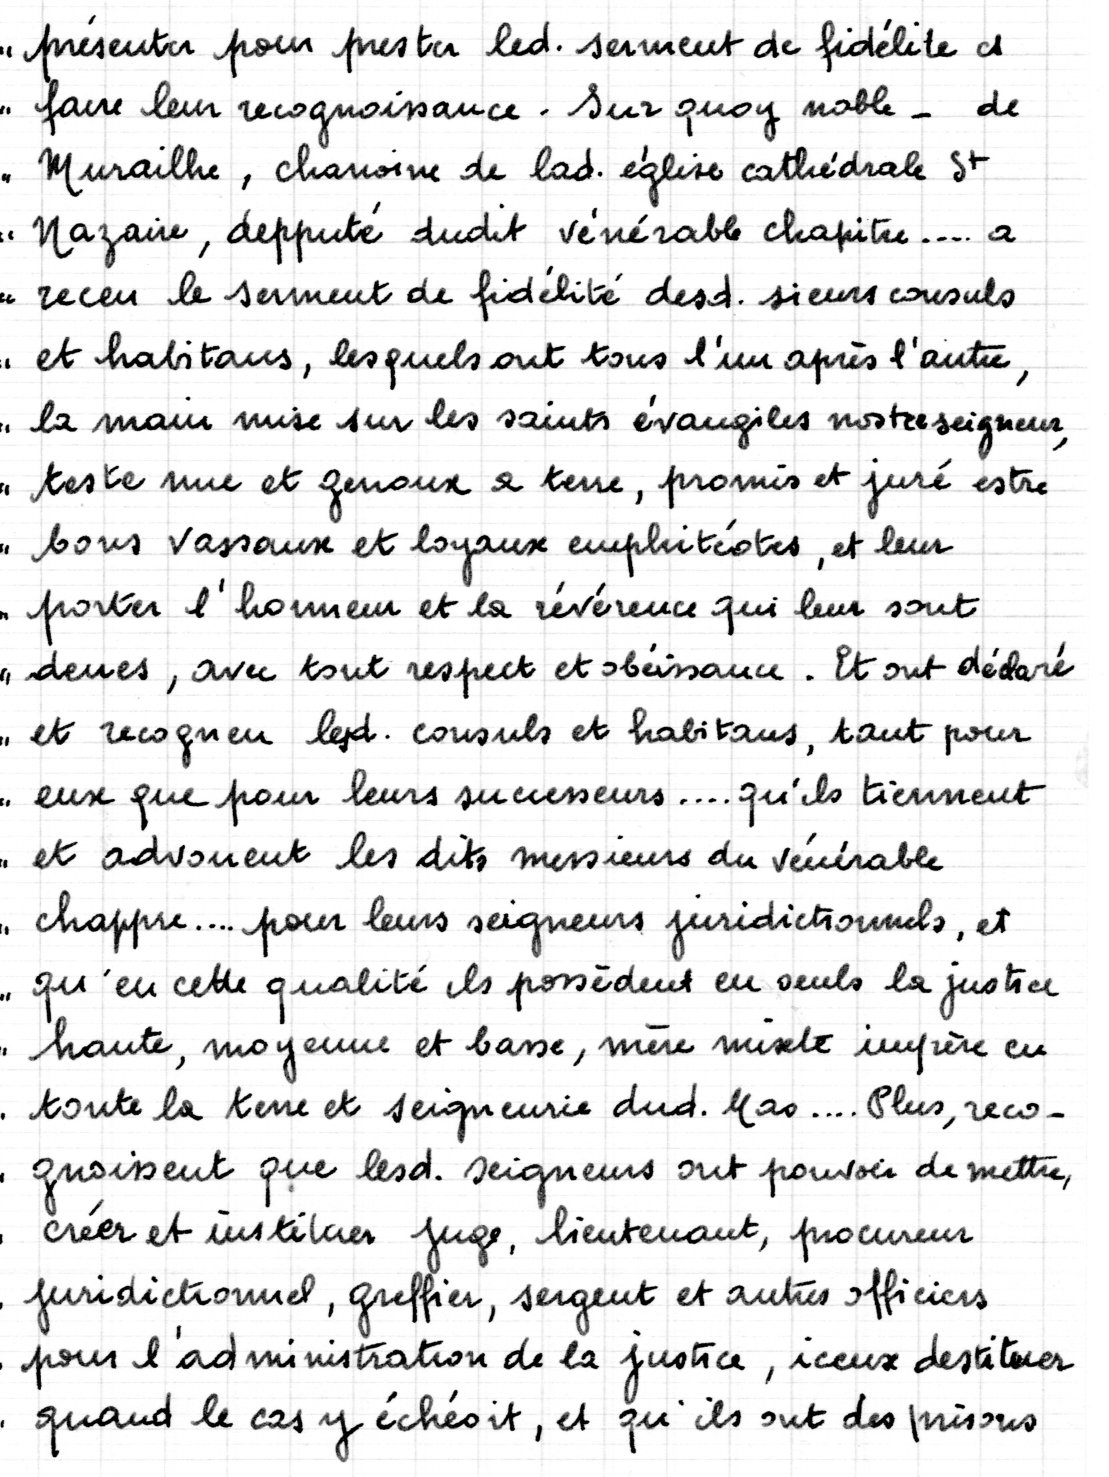 " présenter pour prester led. serment de fidélité et
" faire leur recognoissance. Sur quoy noble - de
" Murailhe, chanoine de lad. église cathédrale St
" Nazaire, depputé dudit vénérable chapitre.... a
" receu le serment de fidélité desd. sieurs consuls
" et habitans, lesquels ont tous l'un après l'autre,
" la main mise sur les saints évangiles nostre seigneur,
" teste nue et genoux a terre, promis et juré estre
" bons vassaux et loyaux emphitéotes, et leur
" porter l'honneur et la révérence qui leur sont
" deues, avec tout respect et obéissance. Et ont déclaré
" et recogneu lesd. consuls et habitans, tant pour
" eux que pour leurs successeurs.... qu'ils tiennent
" et advouent les dits messieurs du vénérable
" chappre.... pour leurs seigneurs juridictionnels, et
" qu'en cette qualité ils possèdent eu seuls la justice
" haute, moyenne et basse, mère mixte impère en
" toute la terre et seigneurie dud. Mas.... Plus, reco-
" gnoissent que lesd. seigneurs ont pouvoir de mettre,
" créer et instituer juge, lieutenant, procureur
" juridictionnel, greffier, sergent et autres officiers
" pour l'administration de la justice, iceux destituer
" quand le cas y échéoit, et qu'ils ont des prisons